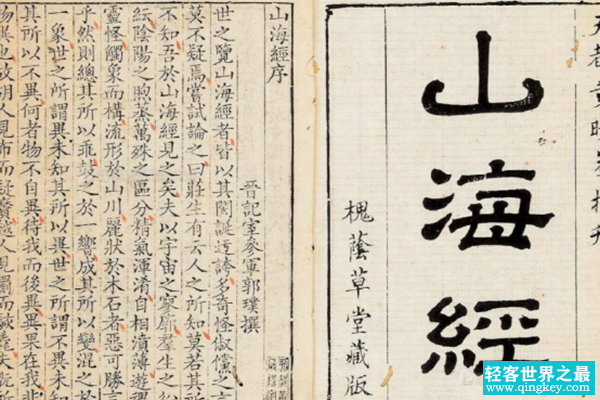 山海經
槐蔭草堂藏版
山海經序
晉記室參軍郭璞撰
世之覽山海經者皆以其閎誕迂誇多奇怪俶儻之言
莫不疑焉嘗試論之曰莊生有云人之所知莫若其所
不知吾於山海經見之矣夫以宇宙之寥廓羣生之紛
紜陰陽之煦蒸萬殊之區分精氣渾淆自相濆薄遊
靈怪觸象而構流形於山川麗狀於木石者惡可勝言
乎然則總其所以乖鼓之於一響成其所以變混之於
一象世之所謂異未知其所以異世之所謂不異未知
其所以不異何者物不自異待我而後異異果在我非
物異也故胡人見布而疑黂越人見罽而駭毳夫
轻客世界之最
www.qingkey.com